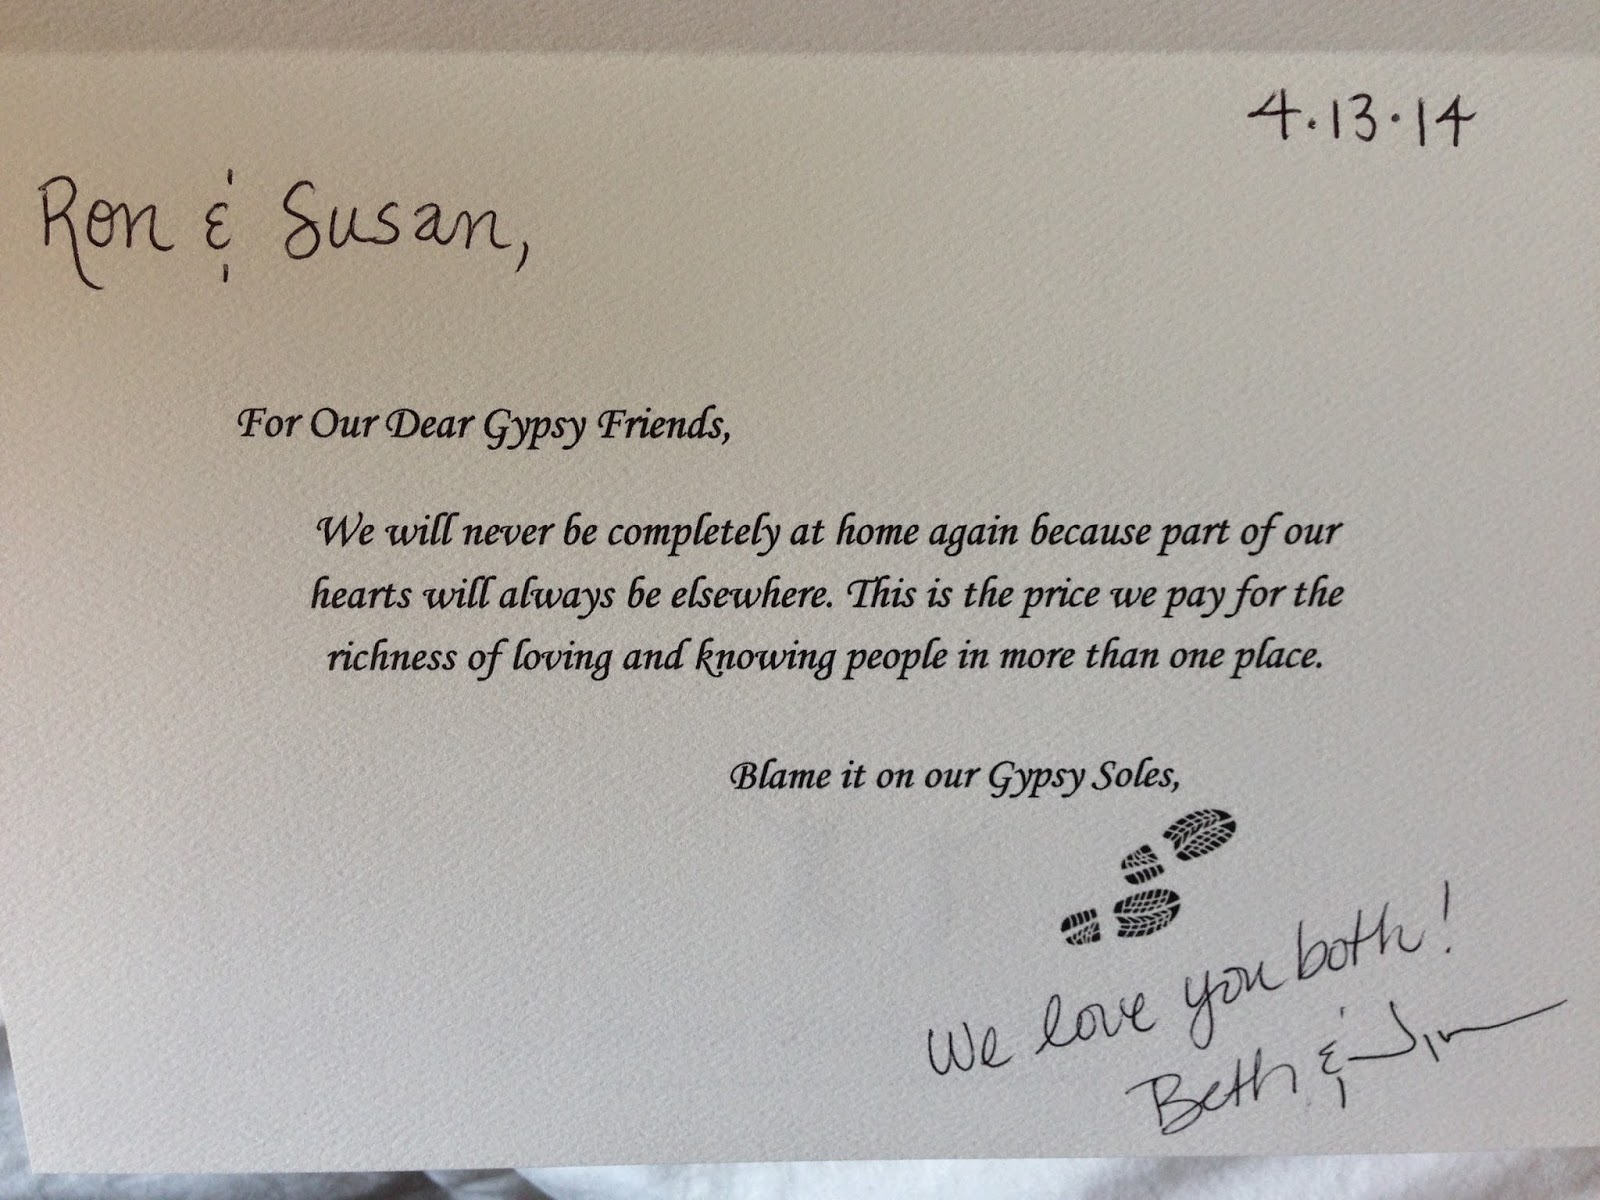 4.13.14
Ron & Susan,
For Our Dear Gypsy Friends,
We will never be completely at home again because part of our
hearts will always be elsewhere. This is the price we pay for the
richness of loving and knowing people in more than one place.
Blame it on our Gypsy Soles,
We love you both!
Beth & Jim